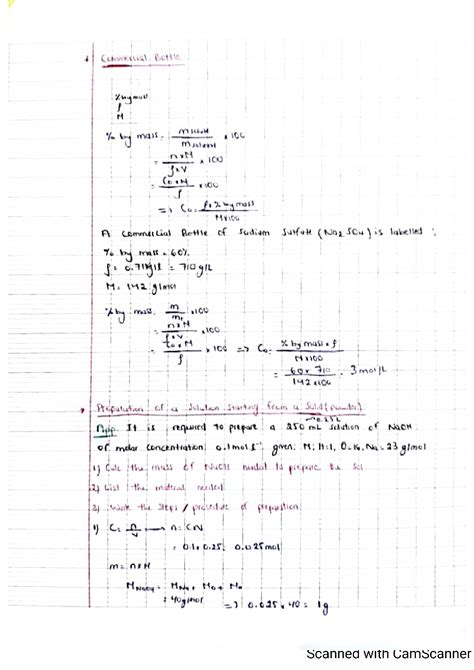 Commercial Bottle
% by mass
ρ
M
% by mass = m solute / m solvent × 100
= n×M / ρ×V × 100
= C₀×M / ρ ×100
=> C₀ = ρ×%by mass / M×100
A commercial Bottle of Sodium Sulfate (Na₂SO₄) is labelled :
% by mass = 60%
ρ = 0.71 = 710 g/L
M = 142 g/mol
% by mass = m / m ×100
= n×M / ρ×V ×100
= C₀×M / ρ × 100 => C₀ = % by mass × ρ / M×100
= 60× 710 / 142×100 = 3 mol/L
Preparation of a Solution Starting from a Solid (powder)
App It is required to prepare a 250 mL solution of NaOH
of molar concentration 0.1 mol.L⁻¹ given: M: H=1, O=16, Na=23 g/mol
1) Calc the mass of NaOH needed to prepare the Sol
2) List the material needed
3) Write the steps / procedure of preparation
1) C = n/V → n = CV
= 0.1× 0.25 = 0.025 mol
m = n×M
M NaOH = M Na + M O + M H
= 40g/mol => 0.025 × 40 = 1g
Scanned with CamScanner